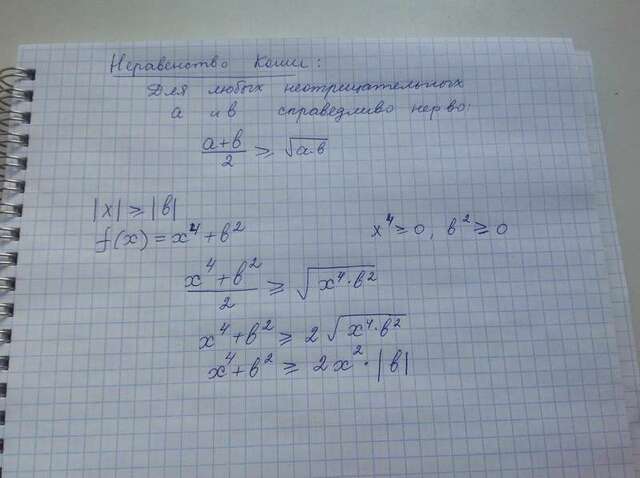 Неравенство Коши:
Для любых неотрицательных
а и в справедливо нер-во:
(а+в)/2 ≥ √(а·в)
|x| ≥ |в|
f(x) = x⁴ + в²
x⁴ ≥ 0, в² ≥ 0
(x⁴ + в²)/2 ≥ √(x⁴·в²)
x⁴ + в² ≥ 2√(x⁴·в²)
x⁴ + в² ≥ 2x²·|в|